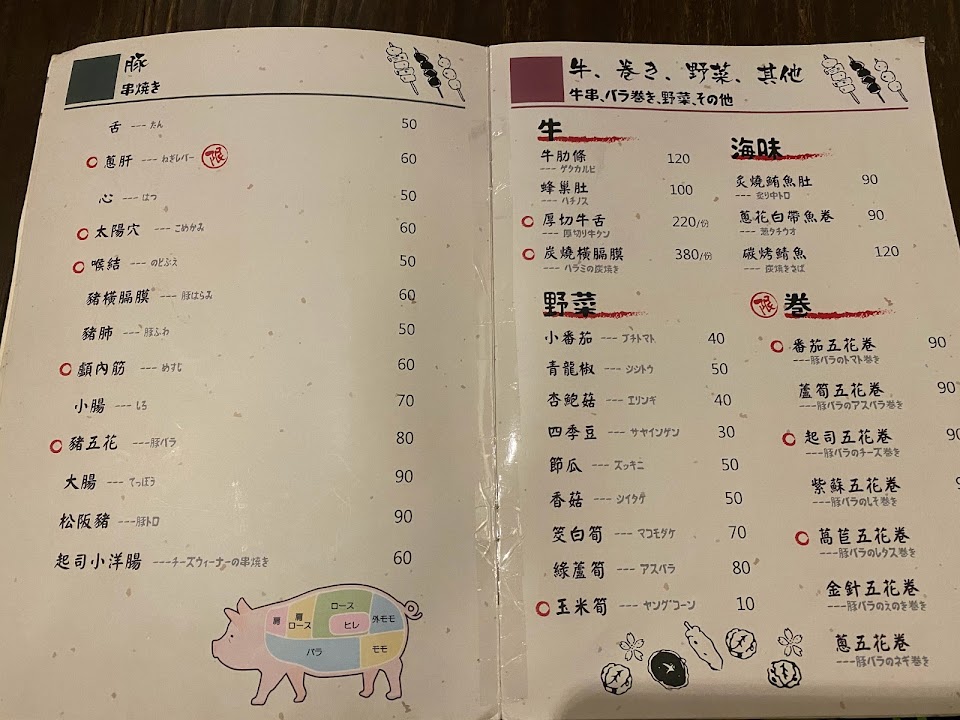 豚
串焼き
舌 --- たん 50
蔥肝 --- ねぎレバー 限 60
心 --- はつ 50
太陽穴 --- こめかみ 60
喉結 --- のどぶえ 50
豬橫膈膜 --- 豚はらみ 60
豬肺 --- 豚ふわ 50
顴內筋 --- めすじ 60
小腸 --- しろ 70
豬五花 --- 豚バラ 80
大腸 --- てっぽう 90
松阪豬 --- 豚トロ 90
起司小洋腸 --- チーズウィーナーの串焼き 60
肩
肩ロース
ロース
ヒレ
外モモ
バラ
モモ
牛、巻き、野菜、其他
牛串、バラ巻き、野菜、その他
牛
牛肋條 120
--- ゲタカルビ
蜂巢肚 100
--- ハチノス
厚切牛舌 220/份
--- 厚切り牛タン
炭燒橫膈膜 380/份
--- ハラミの炭焼き
海味
炙燒鮪魚肚 90
--- 炙り中トロ
蔥花白帶魚卷 90
--- 葱タチウオ
碳烤鯖魚 120
--- 炭焼きさば
野菜
小番茄 --- プチトマト 40
青龍椒 --- シシトウ 50
杏鮑菇 --- エリンギ 40
四季豆 --- サヤインゲン 30
節瓜 --- ズッキニ 50
香菇 --- シイタケ 50
筊白筍 --- マコモダケ 70
綠蘆筍 --- アスパラ 80
玉米筍 --- ヤングコーン 10
限 巻
番茄五花卷 90
---豚バラのトマト巻き
蘆筍五花卷 90
---豚バラのアスパラ巻き
起司五花卷 90
---豚バラのチーズ巻き
紫蘇五花卷
---豚バラのしそ巻き
萵苣五花卷
---豚バラのレタス巻き
金針五花卷
---豚バラのえのき巻き
蔥五花卷
---豚バラのネギ巻き